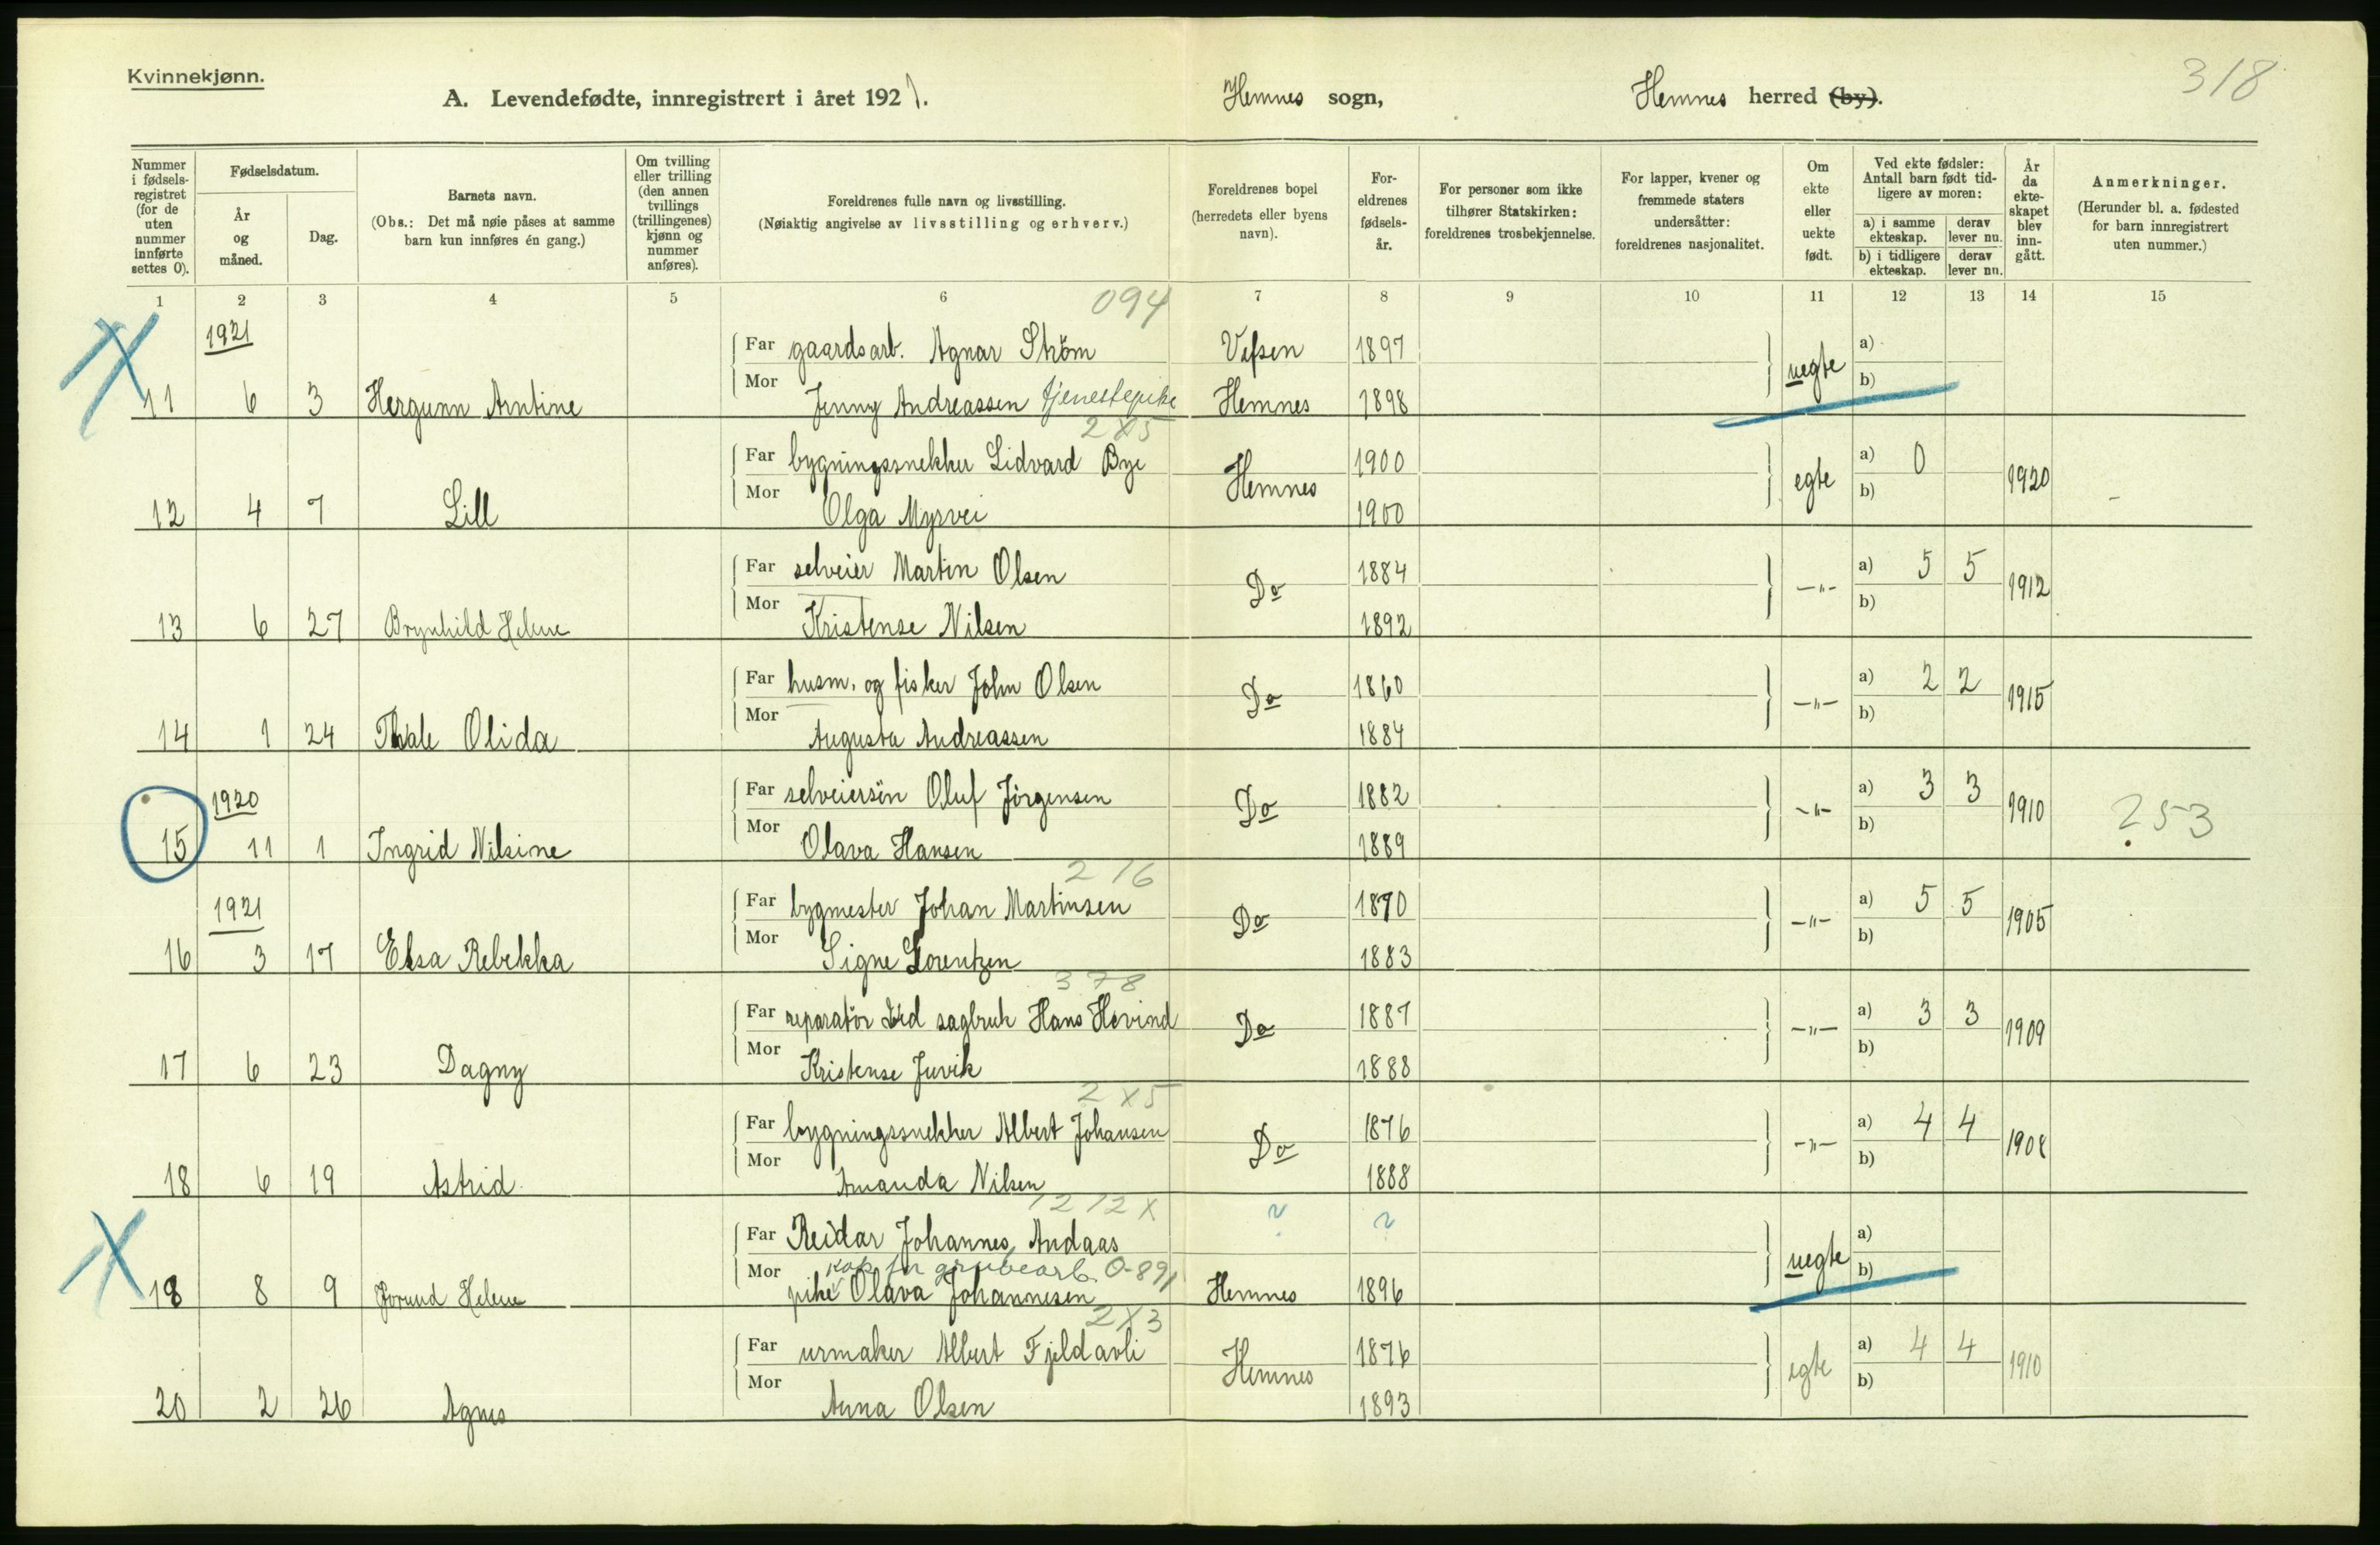 Kvinnekjønn.
318
A. Levendefødte, innregistrert i året 1921. Hemnes sogn, Hemnes herred (by).
Nummer i fødsels-registret (for de uten nummer innførte settes 0).
Fødselsdatum.
År og måned.
Dag.
Barnets navn.
(Obs.: Det må nøie påses at samme barn kun innføres én gang.)
Om tvilling eller trilling (den annen tvillings (trillingenes) kjønn og nummer anføres).
Foreldrenes fulle navn og livsstilling.
(Nøiaktig angivelse av livsstilling og erhverv.)
Foreldrenes bopel (herredets eller byens navn).
For-eldrenes fødsels-år.
For personer som ikke tilhører Statskirken: foreldrenes trosbekjennelse.
For lapper, kvener og fremmede staters undersåtter: foreldrenes nasjonalitet.
Om ekte eller uekte født.
Ved ekte fødsler: Antall barn født tid-ligere av moren:
a) i samme ekteskap. derav lever nu.
b) i tidligere ekteskap. derav lever nu.
År da ekte-skapet blev inn-gått.
Anmerkninger.
(Herunder bl. a. fødested for barn innregistrert uten nummer.)
1 2 3 4 5 6 7 8 9 10 11 12 13 14 15
094
1921
Far gaardsarb. Agnar Ström Vefsen 1897 uegte a)
11 6 3 Hergunn Arntine Mor Jenny Andreassen tjenestepike Hemnes 1898 b)
2X5
Far bygningssnekker Lidvard Bye Hemnes 1900 egte a) 0 1920
12 4 7 Lill Mor Olga Myrvei 1900 b)
Far selveier Martin Olsen Do 1884 -"- a) 5 5 1912
13 6 27 Brynhild Helene Mor Kristense Nilsen 1892 b)
Far husm. og fisker John Olsen Do 1860 -"- a) 2 2 1915
14 1 24 Thale Olida Mor Augusta Andreassen 1884 b)
1920
Far selveiersön Oluf Jörgensen Do 1882 -"- a) 3 3 1910 253
15 11 1 Ingrid Nilsine Mor Olava Hansen 1889 b)
216
1921
Far bygmester Johan Martinsen Do 1870 -"- a) 5 5 1905
16 3 17 Elsa Rebekka Mor Signe Lorentzen 1883 b)
378
Far reparatör ved sagbruk Hans Hovind Do 1887 -"- a) 3 3 1909
17 6 23 Dagny Mor Kristense Juvik 1888 b)
2X5
Far bygningssnekker Albert Johansen Do 1876 -"- a) 4 4 1908
18 6 19 Astrid Mor Amanda Nilsen 1888 b)
1212X
Far Reidar Johannes Andaas ? ? uegte a)
grubearb. 0-891
18 8 9 Jorund Helene Mor pike Olava Johannesen Hemnes 1896 b)
2X3
Far urmaker Albert Fjeldavli Hemnes 1876 egte a) 4 4 1910
20 2 26 Agnes Mor Anna Olsen 1893 b)